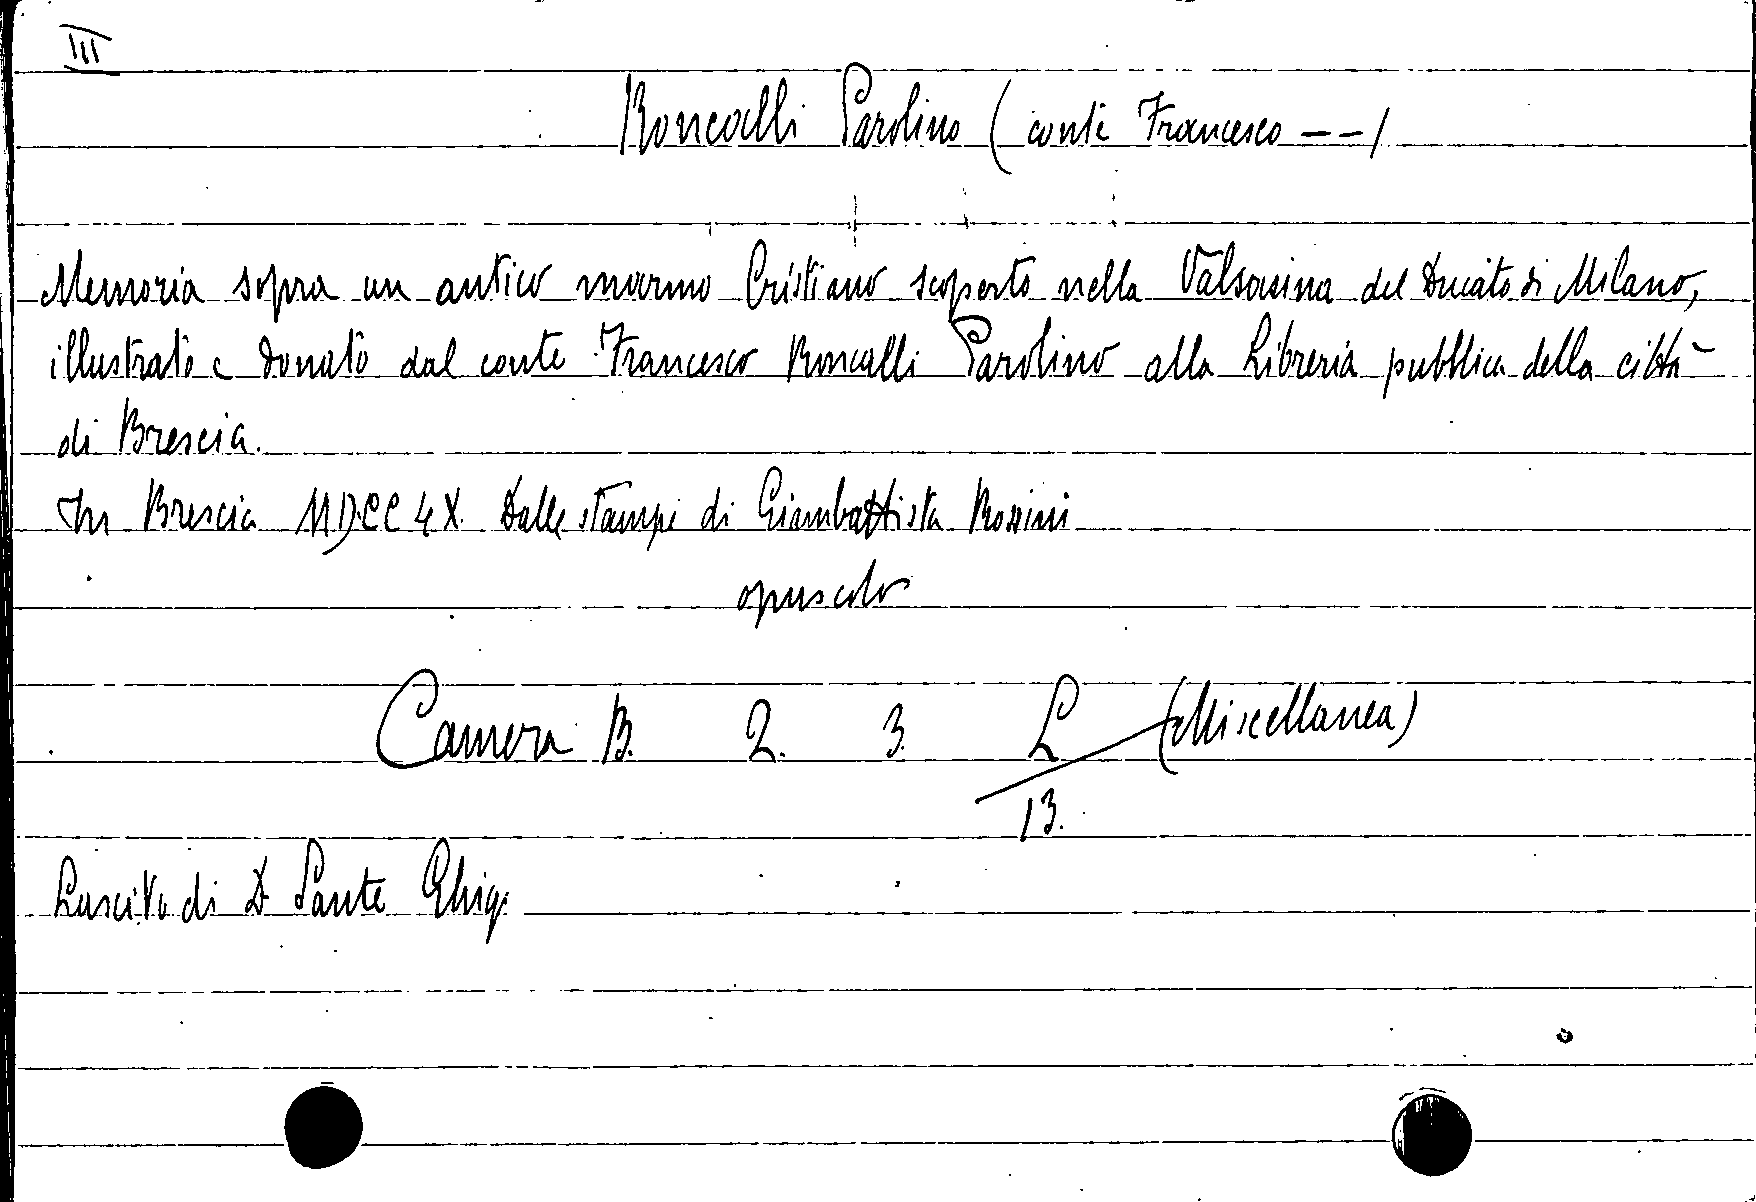 III
Roncalli Parolino (conte Francesco --)
Memoria sopra un antico marmo Cristiano scoperto nella Valsasina del Ducato di Milano,
illustrato e donato dal conte Francesco Roncalli Parolino alla Libreria pubblica della città
di Brescia.
In Brescia MDCCLX. Dalle stampe di Giambattista Bossini
opuscolo
Camera B. 2. 3. L (Miscellanea)
13.
Lascito di D. Sante